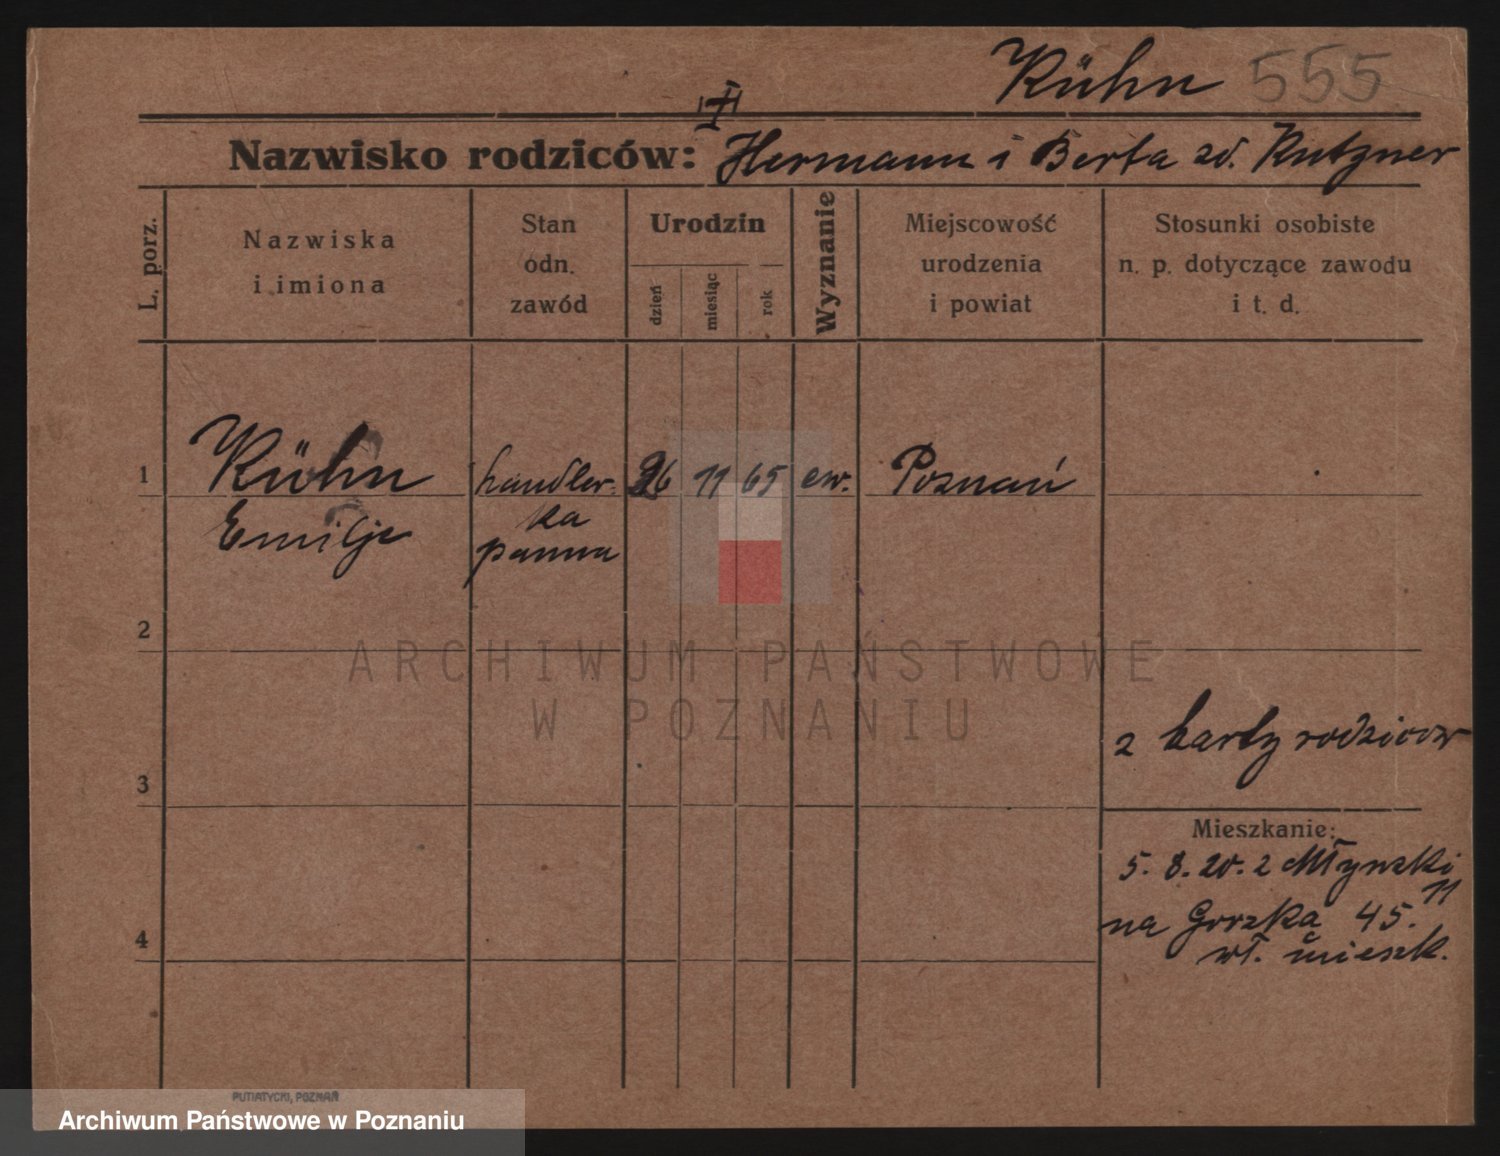 Kühn 555
Nazwisko rodziców: Hermann i Berta zd. Kutzner
L. porz.
Nazwiska
i imiona
Stan
odn.
zawód
Urodzin
dzień
miesiąc
rok
Wyznanie
Miejscowość
urodzenia
i powiat
Stosunki osobiste
n. p. dotyczące zawodu
i t. d.
1
Kühn
Emilje
handlar-
ka
panna
26 11 65 ew. Poznań
2
ARCHIWUM PAŃSTWOWE
W POZNANIU
z karty rodziców
3
Mieszkanie:
5. 8. 20. z Młyńskiej 11
na Gorzka 45.
wł. mieszk.
4
PUTIATYCKI, POZNAŃ
Archiwum Państwowe w Poznaniu